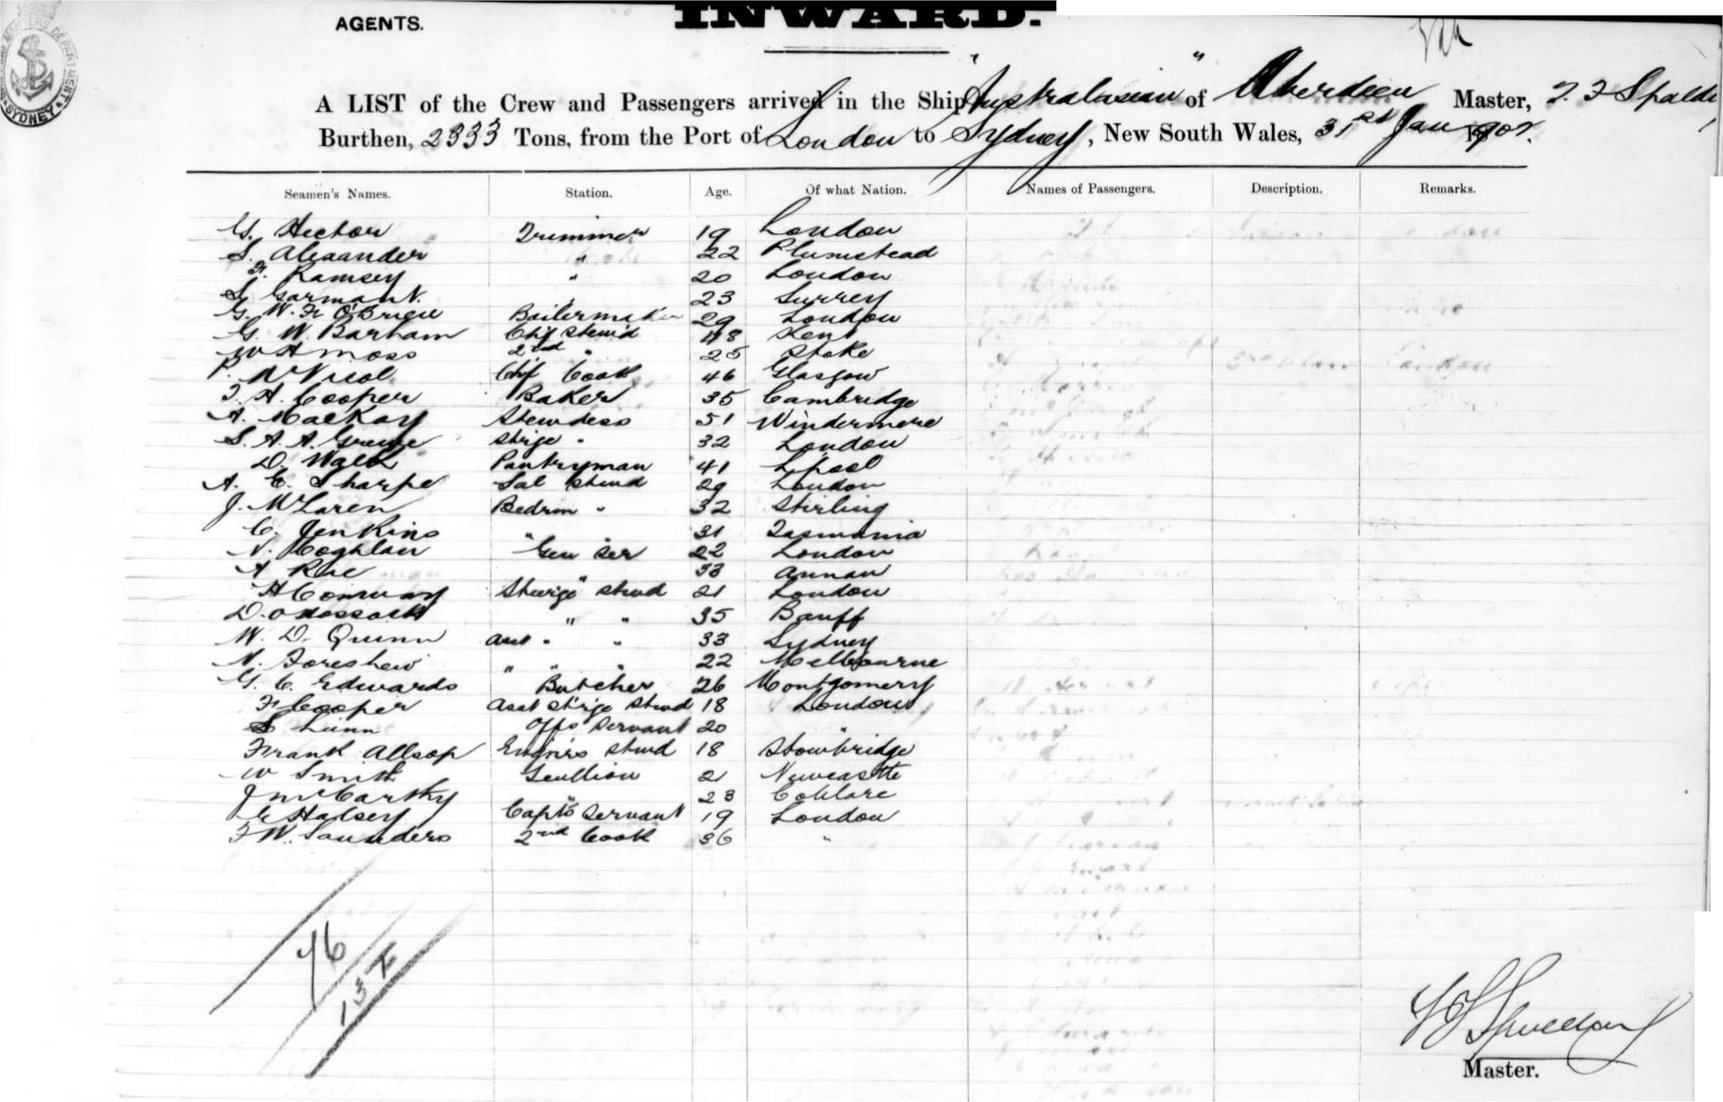 AGENTS.
INWARD.
A LIST of the Crew and Passengers arrived in the Ship "Australasian" of Aberdeen Master,
Burthen, 2333 Tons, from the Port of London to Sydney, New South Wales, 31st Jan
Seamen's Names. Station. Age. Of what Nation. Names of Passengers. Description. Remarks.
G. Hector Trimmer 19 London
S. Alexander " 22 Plumstead
F. Ramsey " 20 London
S. Garman " 23 Surrey
G. W. F. O'Brien Boilermaker 29 London
G. W. Barham Chf Stew'd 48 Kent
W H Moss 2nd " 25 Stoke
P. McNicol Chf Cook 46 Glasgow
T. H. Cooper Baker 35 Cambridge
A. MacKay Stewdess 51 Windermere
S. A. A. 32 London
D. Pantryman 41 L'pool
A. E. Sharpe Sal Stewd 29 London
J. McLaren Bedrm " 32 Stirling
C. Jenkins 31 Tasmania
N. Coghlan " Gen Ser 22 London
A Rae 33 Annan
H Conway Steerge Stwd 21 London
D. " " 35 Banff
W. D. Quinn asst " " 33 Sydney
N. Foreshew " " " 22 Melbourne
G. C. Edwards Butcher 26 Montgomery
F Cooper Asst St'ge Stwd 18 London
S Lunn Offs Servant 20 "
Frank Allsop Engnrs Stwd 18 Stowbridge
W Smith Scullion 21 Newcastle
J McCarthy " 23
Halsey Capt's Servant 19 London
F W. Saunders 2nd Cook 36 "
76
Master.
SYDNEY